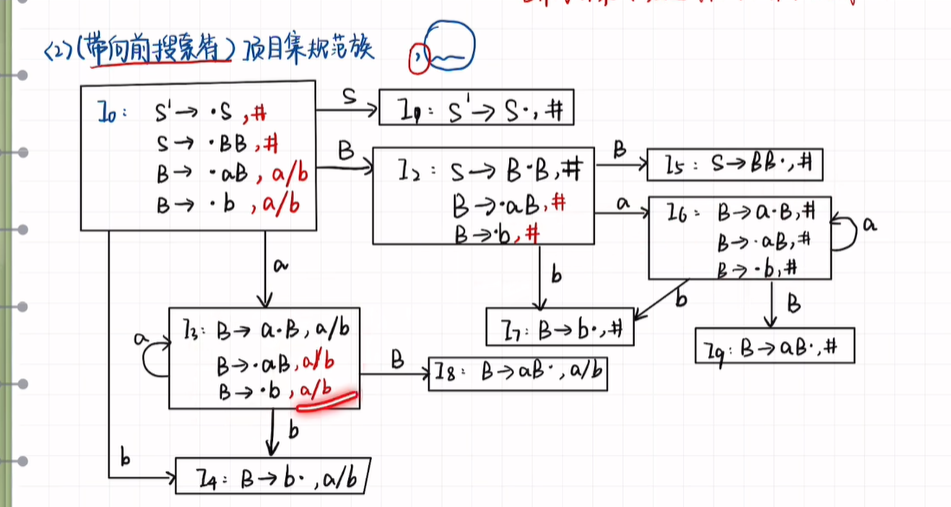 <2>(带向前搜索符)项目集规范族
I₀: S'→·S,#
S→·BB,#
B→·aB,a/b
B→·b,a/b
S
I₁: S'→S·,#
B
I₂: S→B·B,#
B→·aB,#
B→·b,#
B
I₅: S→BB·,#
a
I₆: B→a·B,#
B→·aB,#
B→·b,#
a
a
b
b
B
I₃: B→a·B,a/b
B→·aB,a/b
B→·b,a/b
a
B
I₇: B→b·,#
I₉: B→aB·,#
I₈: B→aB·,a/b
b
b
I₄: B→b·,a/b